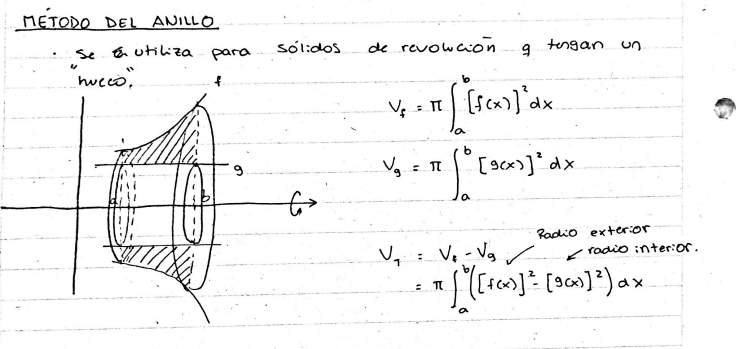 MÉTODO DEL ANILLO
· Se utiliza para sólidos de revolución q tengan un
"hueco".
f
g
a
b
V_f = π ∫_a^b [f(x)]² dx
V_g = π ∫_a^b [g(x)]² dx
Radio exterior
radio interior.
V_T = V_f - V_g
= π ∫_a^b ([f(x)]² - [g(x)]²) dx